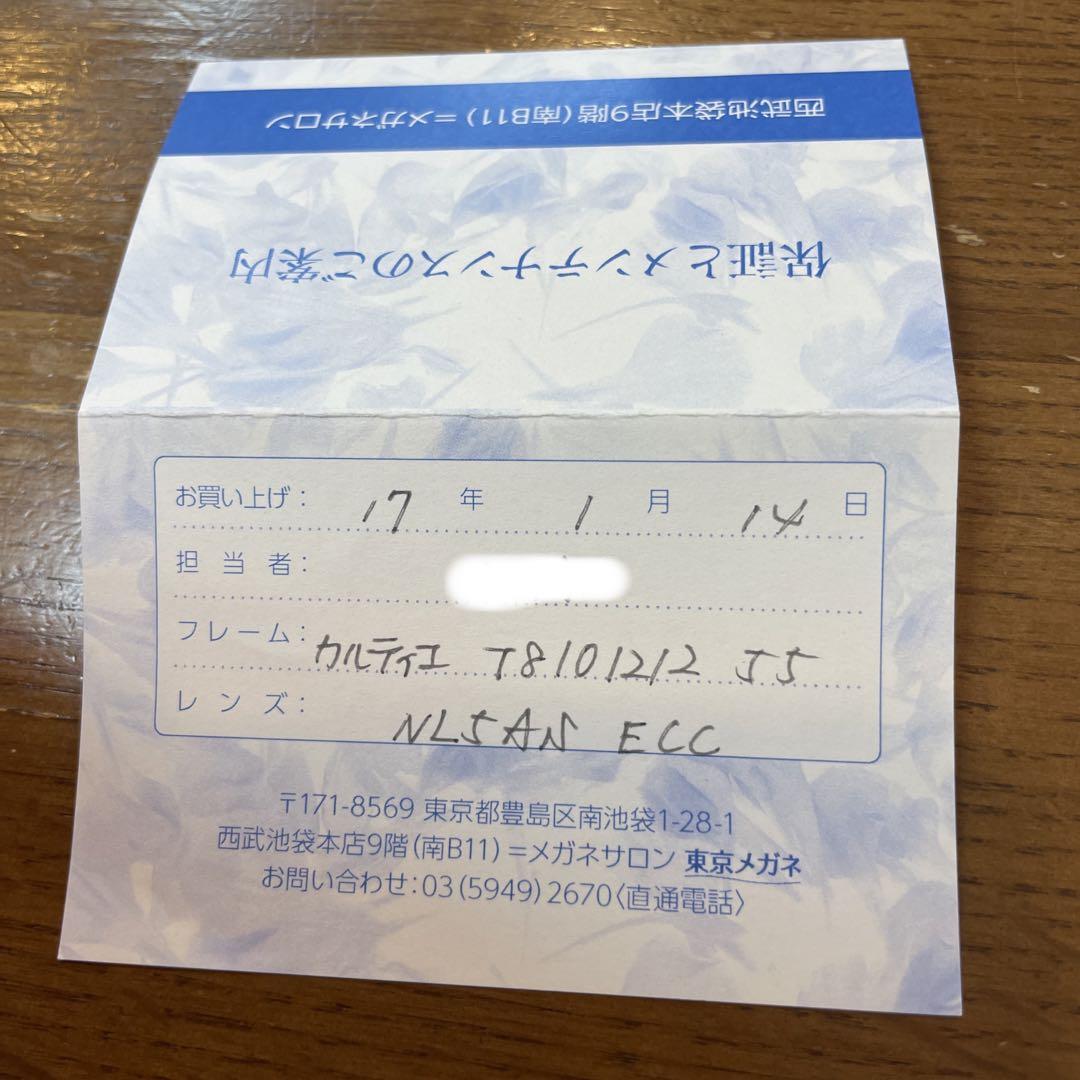 西武池袋本店9階(南B11)=メガネサロン
保証とメンテナンスのご案内
お買い上げ: 17 年 1 月 14 日
担当者:
フレーム: カルティエ T8101212 55
レンズ: NL5AS ECC
〒171-8569 東京都豊島区南池袋1-28-1
西武池袋本店9階(南B11)=メガネサロン 東京メガネ
お問い合わせ:03(5949)2670〈直通電話〉